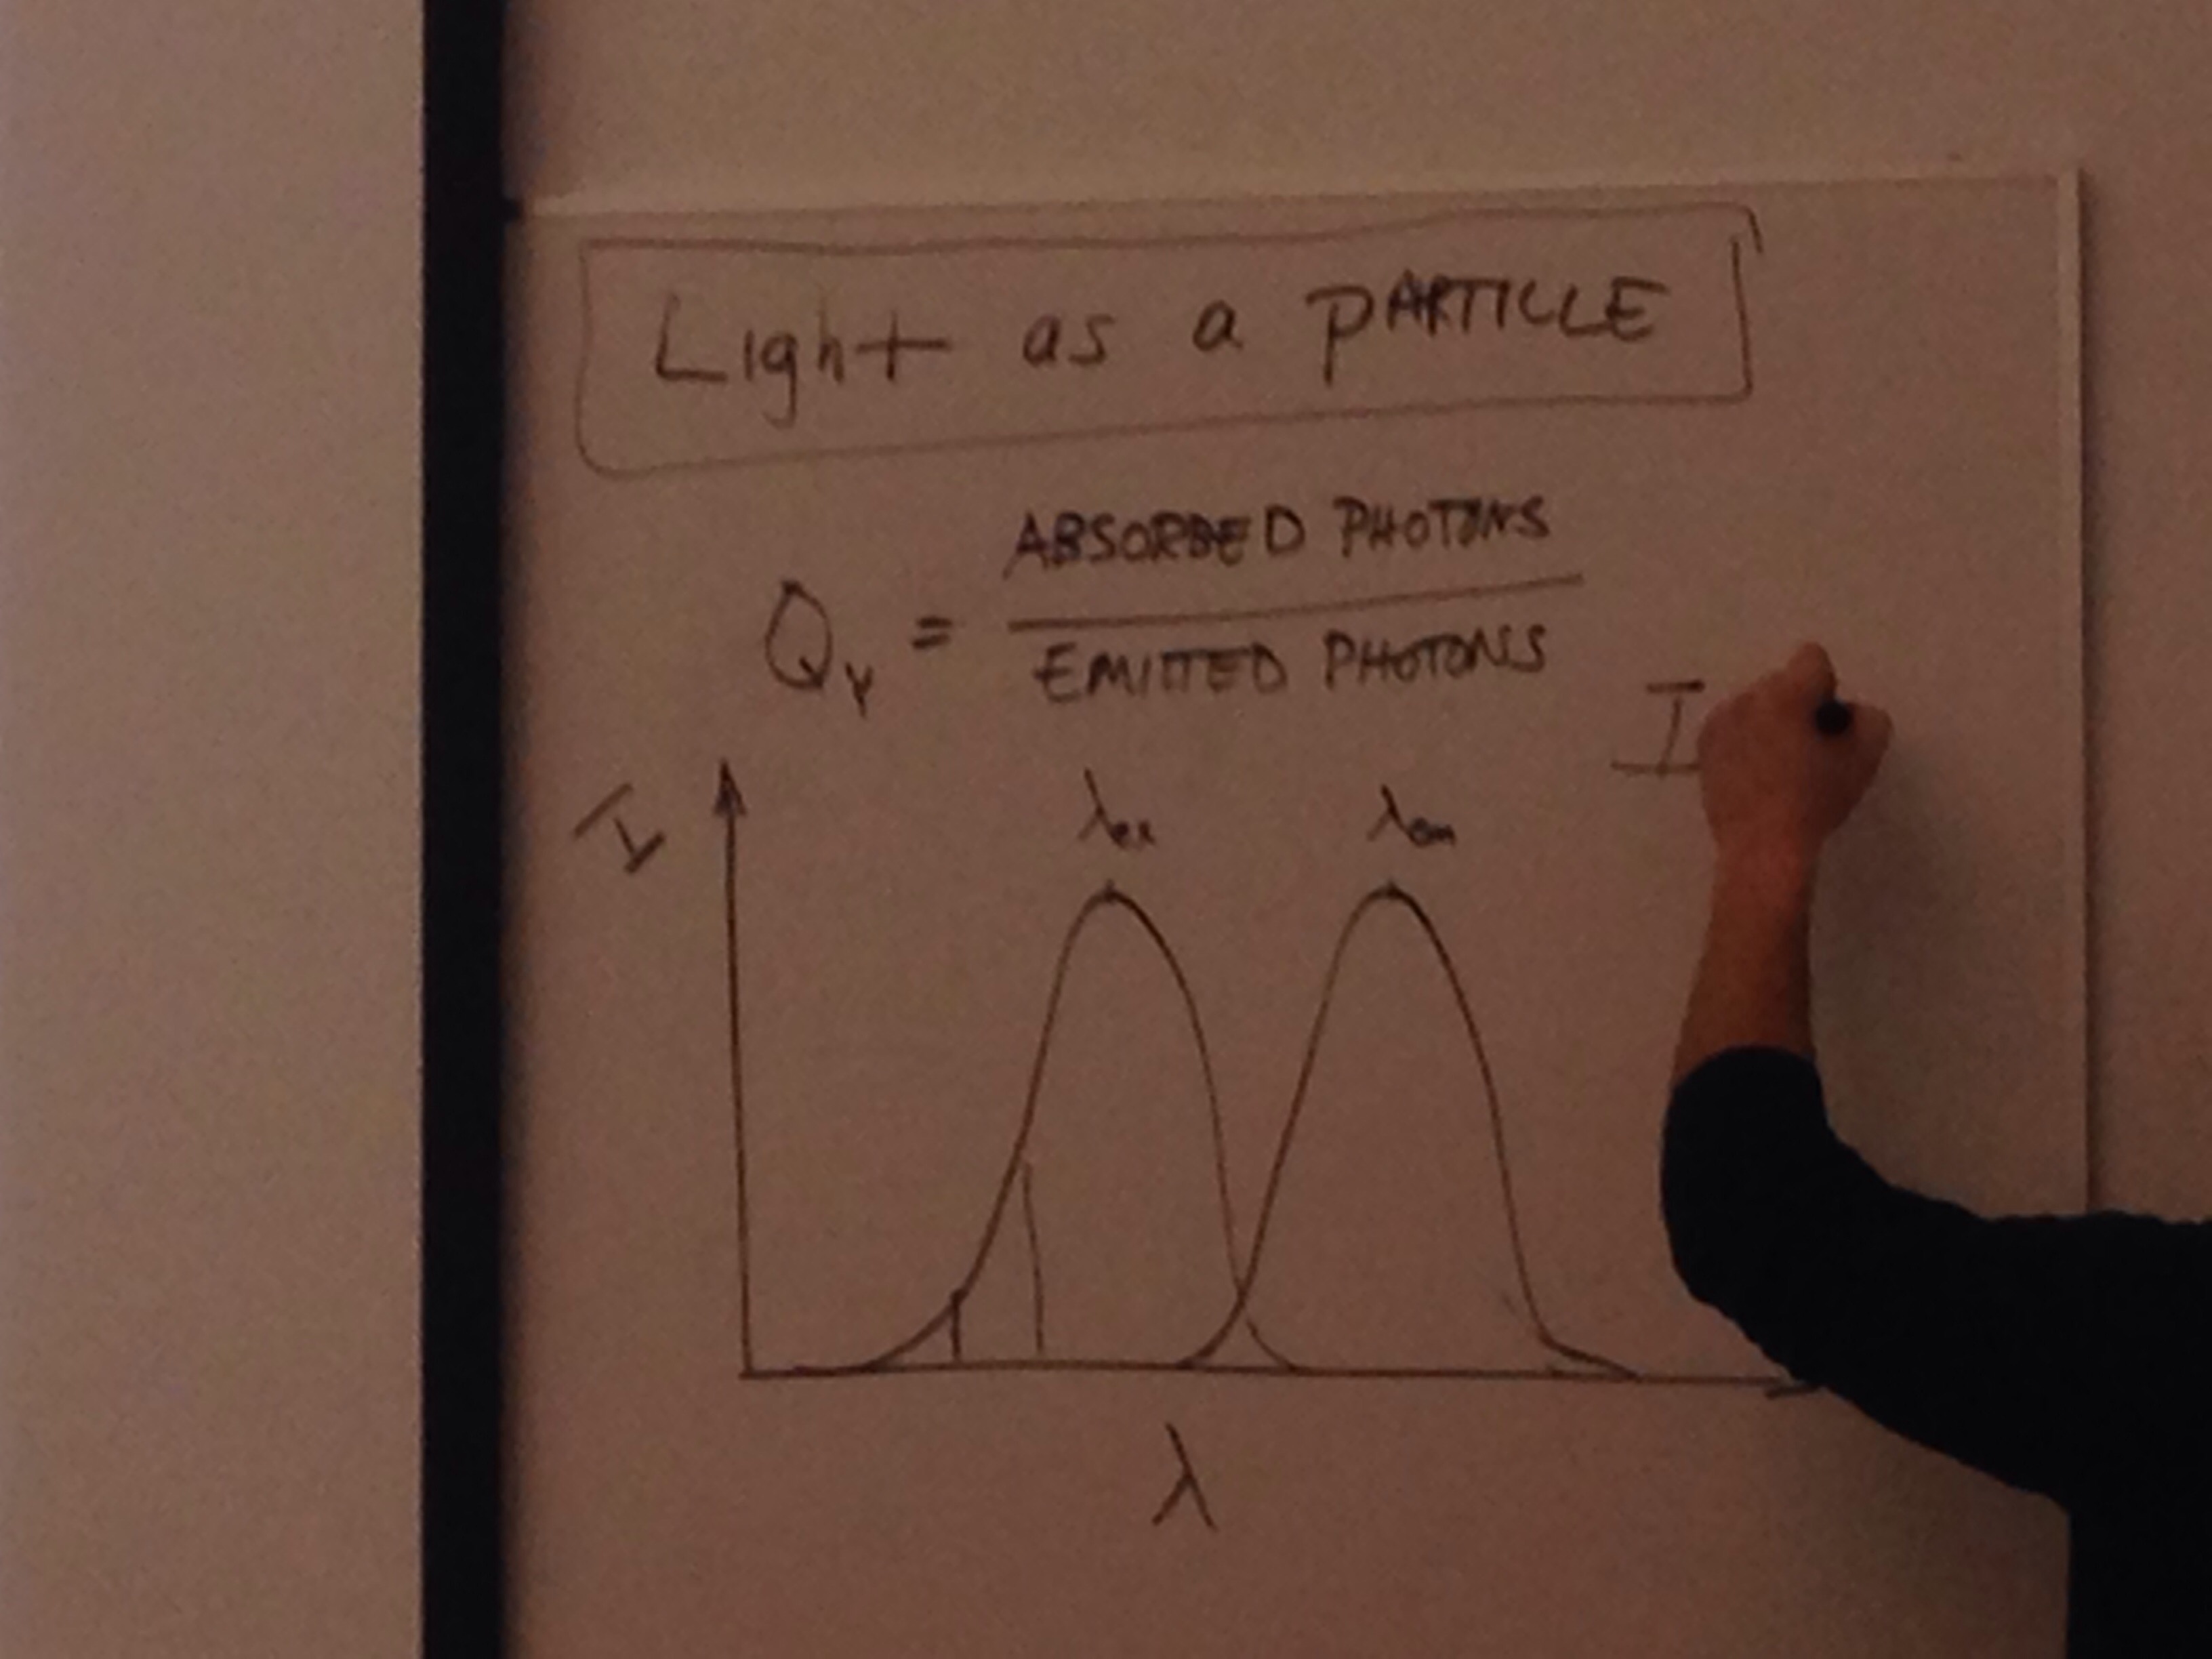 Light as a PARTICLE
Qy = ABSORBED PHOTONS
EMITTED PHOTONS
I
I
λex λem
λ